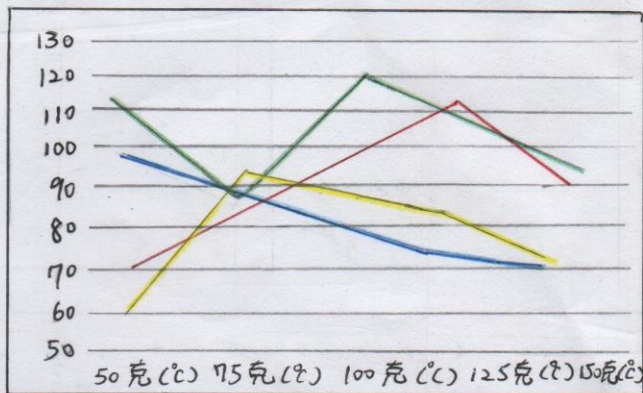 130
120
110
100
90
80
70
60
50
50克(℃) 75克(℃) 100克(℃) 125克(℃) 150克(℃)